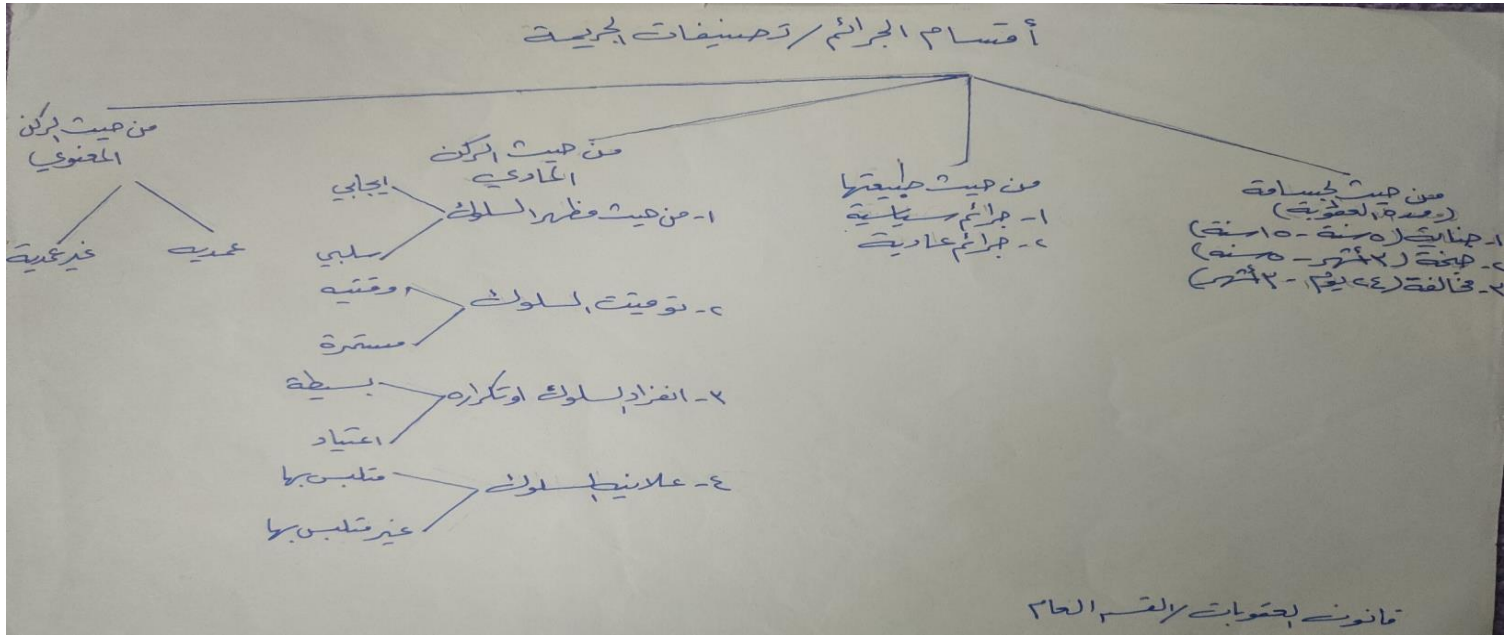 أقسام الجرائم / تصنيفات الجريمة
من حيث الجسامة
(مدة العقوبة)
١- جناية (٥ سنة - ١٥ سنة)
٢- جنحة (٣ أشهر - ٥ سنة)
٣- مخالفة (٢٤ يوم - ٣ أشهر)
من حيث طبيعتها
١- جرائم سياسية
٢- جرائم عادية
من حيث الركن
المادي
١- من حيث مظهر السلوك
ايجابي
سلبي
٢- توقيت السلوك
وقتيه
مستمرة
٣- انفراد السلوك او تكراره
بسيطة
اعتياد
٤- علانية السلوك
متلبس بها
غير متلبس بها
من حيث الركن
المعنوي
عمديه
غير عمدية
قانون العقوبات / القسم العام